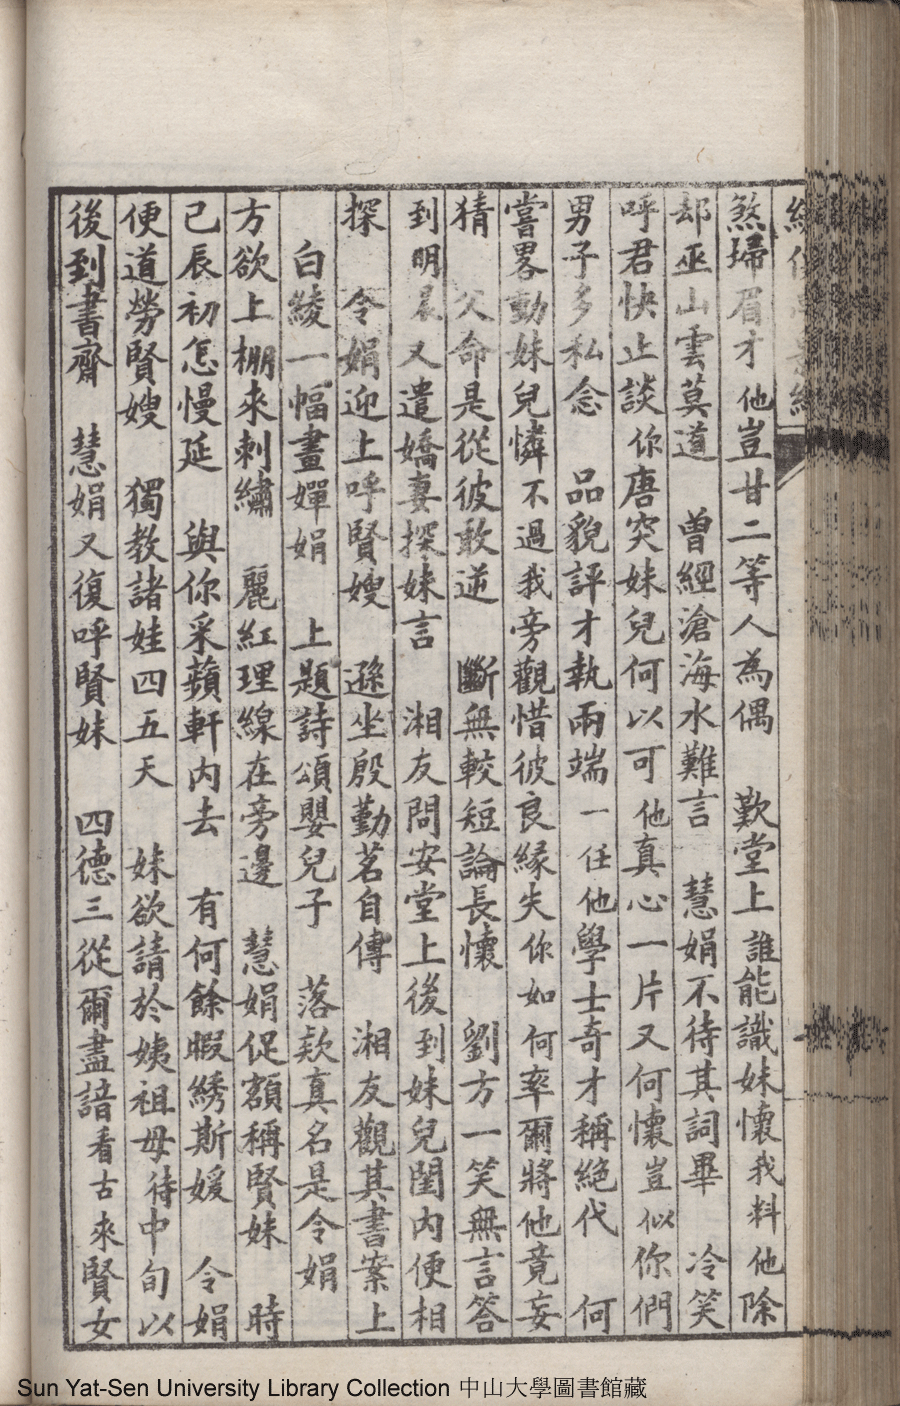 煞掃眉才他豈甘二等人為偶　歎堂上誰能識妹懷我料他除
却巫山雲莫道　曾經滄海水難言　慧娟不待其詞畢　冷笑
呼君快止談你唐突妹兒何以可他真心一片又何懷豈似你們
男子多私念　品貌評才執兩端一任他學士奇才稱絕代　何
嘗畧動妹兒憐不過我旁觀惜彼良緣失你如何率爾將他竟妄
猜　父命是從彼敢逆　斷無較短論長懷　劉方一笑無言答
到明晨又遣嬌妻探妹言　湘友問安堂上後到妹兒閨內便相
探　令娟迎上呼賢嫂　遜坐殷勤茗自傳　湘友觀其書案上
白綾一幅畫嬋娟　上題詩頌嬰兒子　落款真名是令娟
方欲上棚來刺繡　麗紅理線在旁邊　慧娟促額稱賢妹　時
己辰初怎慢延　與你采蘋軒内去　有何餘暇綉斯媛　令娟
便道勞賢嫂　獨教諸娃四五天　妹欲請於姨祖母待中旬以
後到書齋　慧娟又復呼賢妹　四德三從爾盡諳看古來賢女
Sun Yat-Sen University Library Collection 中山大學圖書館藏